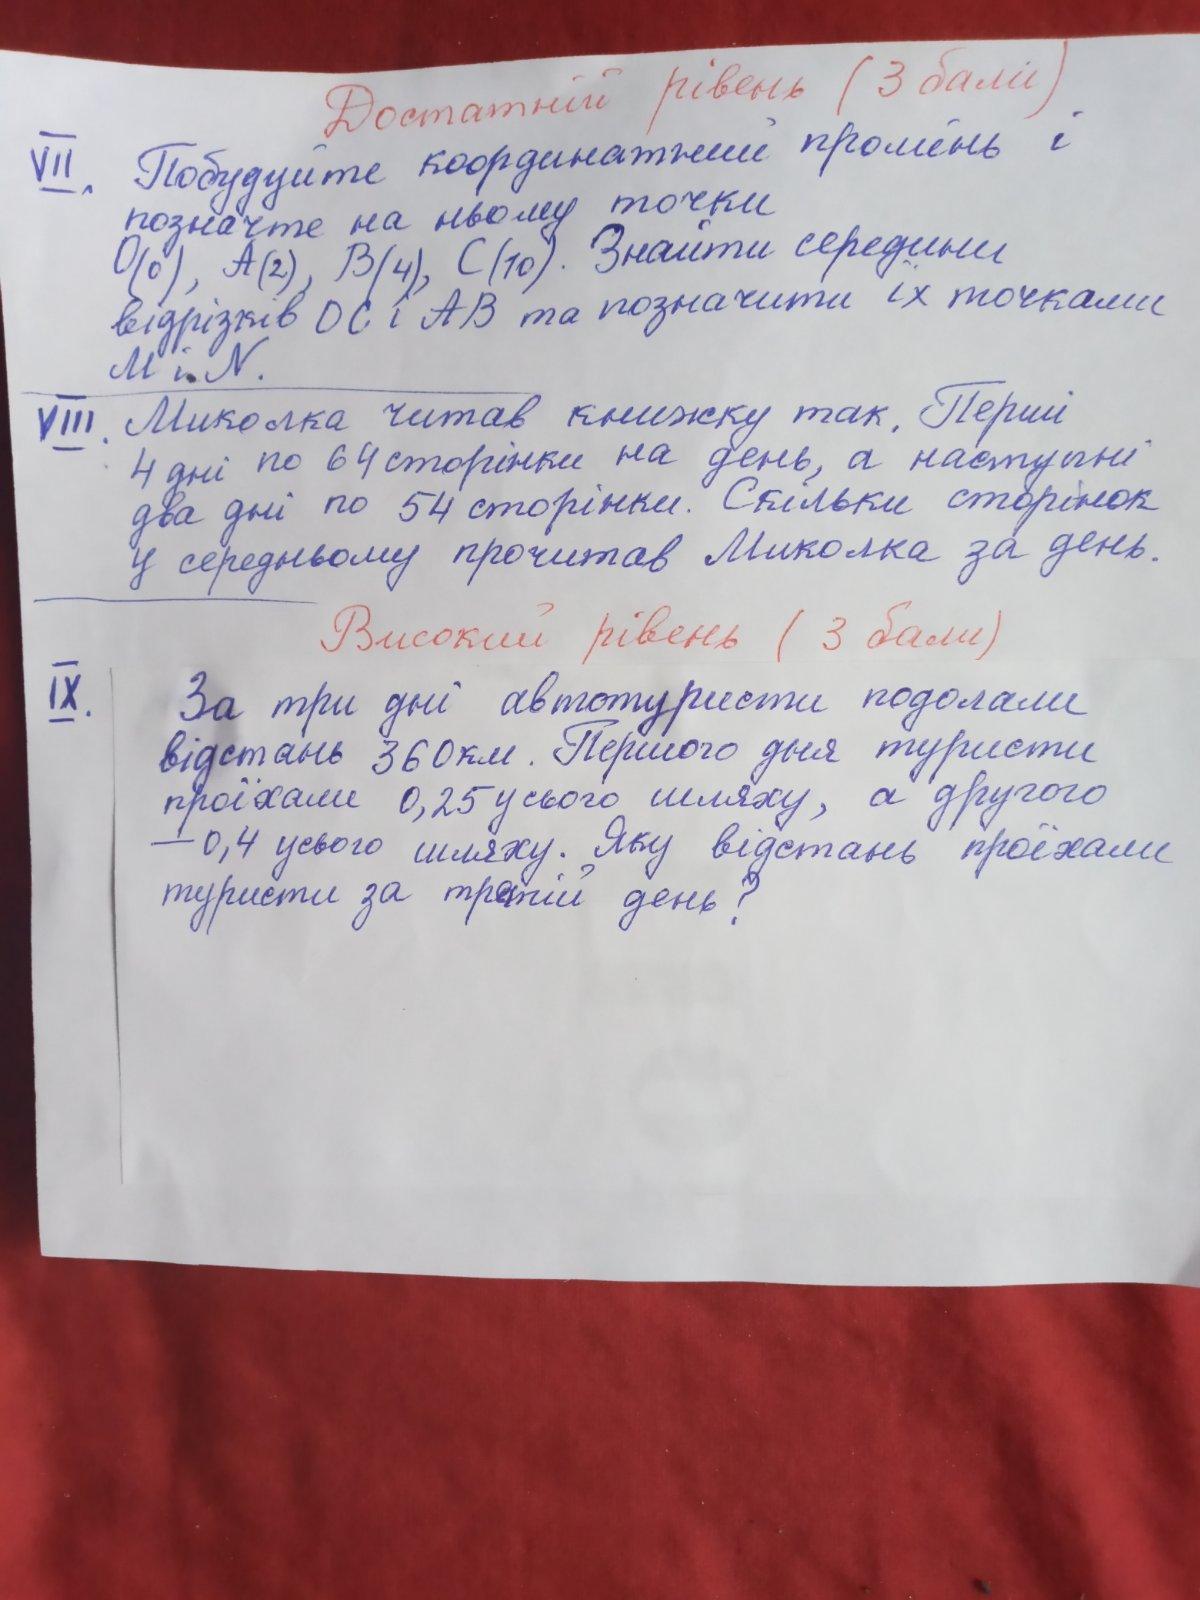 Достатній рівень (3 бали)
VII. Побудуйте координатний промінь і
позначте на ньому точки
O(0), A(2), B(4), C(10). Знайти середини
відрізків OC і AB та позначити їх точками
M і N.
VIII. Миколка читав книжку так. Перші
4 дні по 64 сторінки на день, а наступні
два дні по 54 сторінки. Скільки сторінок
у середньому прочитав Миколка за день.
Високий рівень (3 бали)
IX. За три дні автотуристи подолали
відстань 360 км. Першого дня туристи
проїхали 0,25 усього шляху, а другого
– 0,4 усього шляху. Яку відстань проїхали
туристи за третій день?